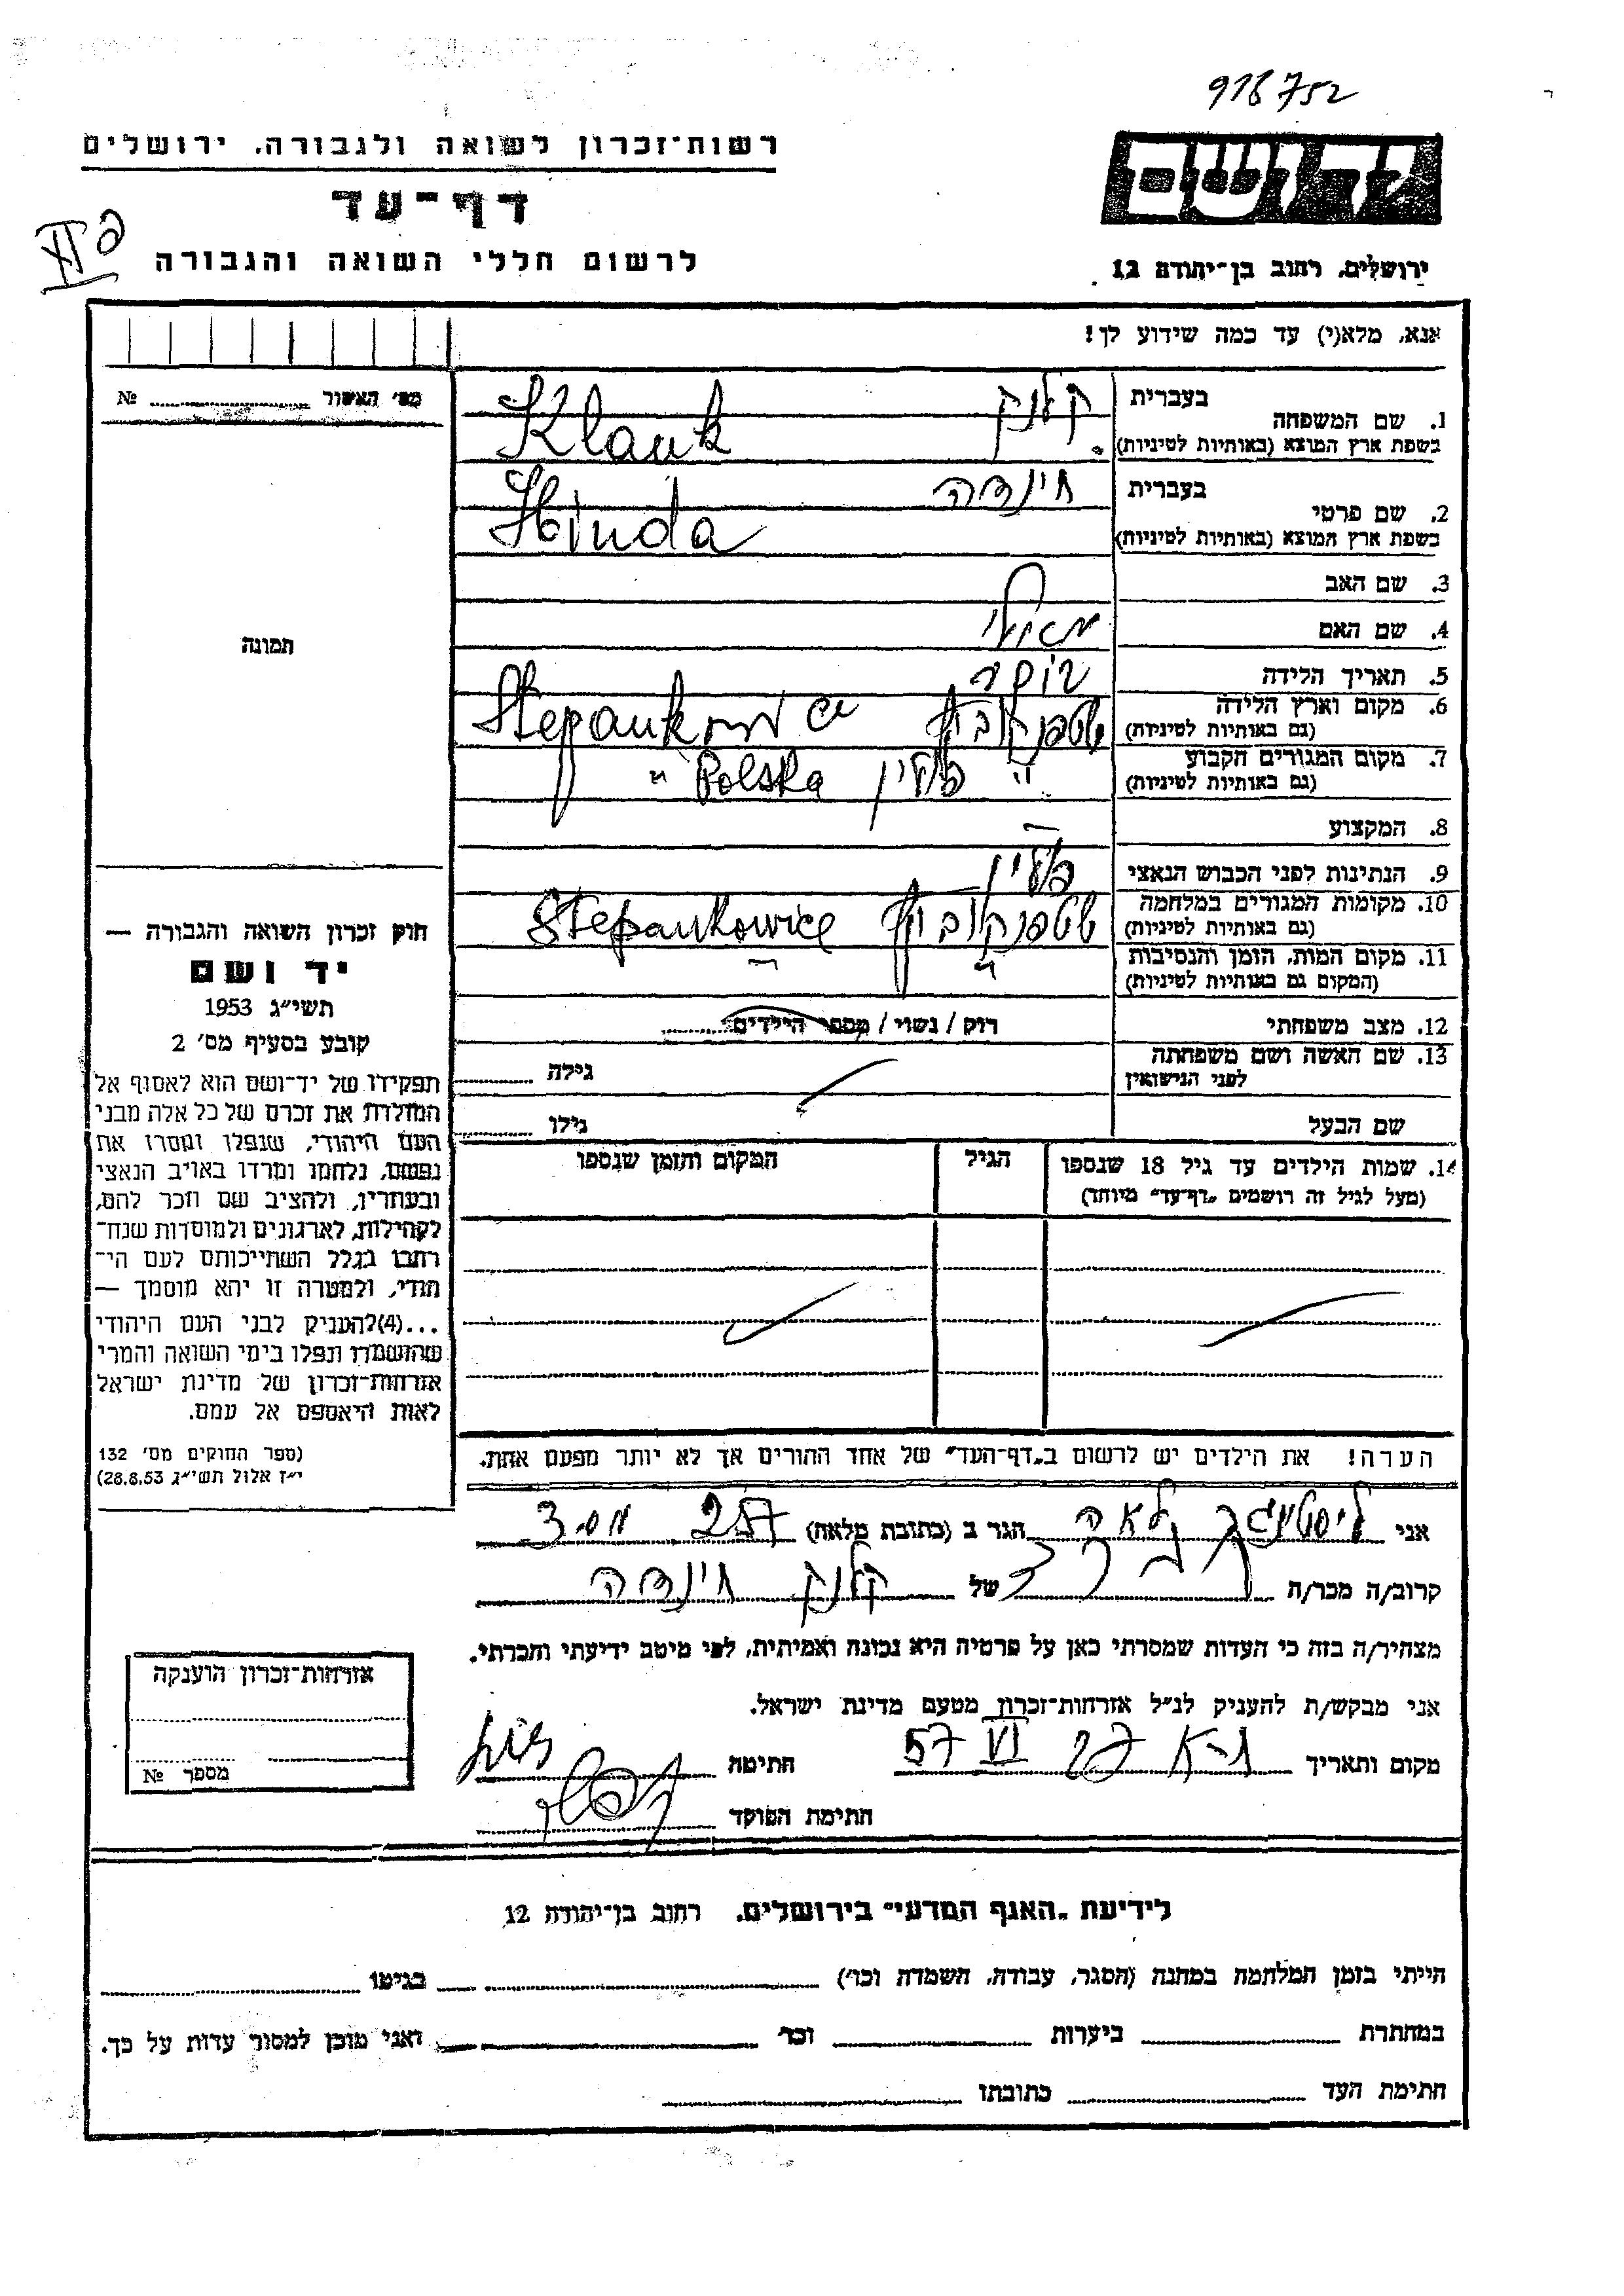 918752
רשות־זכרון לשואה ולגבורה, ירושלים
יד ושם
דף־עד
לרשום חללי השואה והגבורה
ירושלים, רחוב בן־יהודה 12
אנא, מלא(י) עד כמה שידוע לך!
מס׳ האשור № 
1. שם המשפחה בעברית קלנק
בשפת ארץ המוצא (באותיות לטיניות) Klank
2. שם פרטי בעברית הינדה
בשפת ארץ המוצא (באותיות לטיניות) Hinda
3. שם האב
4. שם האם
5. תאריך הלידה
6. מקום וארץ הלידה
(גם באותיות לטיניות) שטפנקוביץ Stepankowice
7. מקום המגורים הקבוע
(גם באותיות לטיניות) " פולין Polska "
8. המקצוע –
9. הנתינות לפני הכבוש הנאצי פולין
10. מקומות המגורים במלחמה
(גם באותיות לטיניות) שטפנקוביץ Stepankowice
11. מקום המות, הזמן והנסיבות
(המקום גם באותיות לטיניות) " "
12. מצב משפחתי רווק / נשוי / מספר הילדים
13. שם האשה ושם משפחתה
לפני הנישואין גילה
שם הבעל גילו
14. שמות הילדים עד גיל 18 שנספו
(מעל לגיל זה רושמים „דף־עד” מיוחד)
הגיל
המקום והזמן שנספו
הערה! את הילדים יש לרשום ב„דף־העד” של אחד ההורים אך לא יותר מפעם אחת.
תמונה
חוק זכרון השואה והגבורה —
יד ושם
תשי״ג 1953
קובע בסעיף מס׳ 2
תפקידו של יד־ושם הוא לאסוף אל
המולדת את זכרם של כל אלה מבני
העם היהודי, שנפלו ומסרו את
נפשם, נלחמו ומרדו באויב הנאצי
ובעוזריו, ולהציב שם וזכר להם,
לקהילות, לארגונים ולמוסדות שנח־
רבו בגלל השתייכותם לעם הי־
הודי, ולמטרה זו יהא מוסמך —
...(4)להעניק לבני העם היהודי
שהושמדו ונפלו בימי השואה והמרי
אזרחות־זכרון של מדינת ישראל
לאות היאספם אל עמם.
(ספר החוקים מס׳ 132
י״ז אלול תשי״ג 28.8.53)
אני לאה הגר ב (כתובת מלאה) 257
קרוב/ה מכר/ה של קלנק הינדה
מצהיר/ה בזה כי העדות שמסרתי כאן על פרטיה היא נכונה ואמיתית, לפי מיטב ידיעתי והכרתי.
אני מבקש/ת להעניק לנ״ל אזרחות־זכרון מטעם מדינת ישראל.
מקום ותאריך 27 VI 57 חתימה
חתימת הפוקד
אזרחות־זכרון הוענקה
מספר №
לידיעת „האגף המדעי” בירושלים, רחוב בן־יהודה 12
הייתי בזמן המלחמה במחנה (הסגר, עבודה, השמדה וכו׳) בגיטו
במחתרת ביערות וכו׳ ואני מוכן למסור עדות על כך.
חתימת העד כתובתו